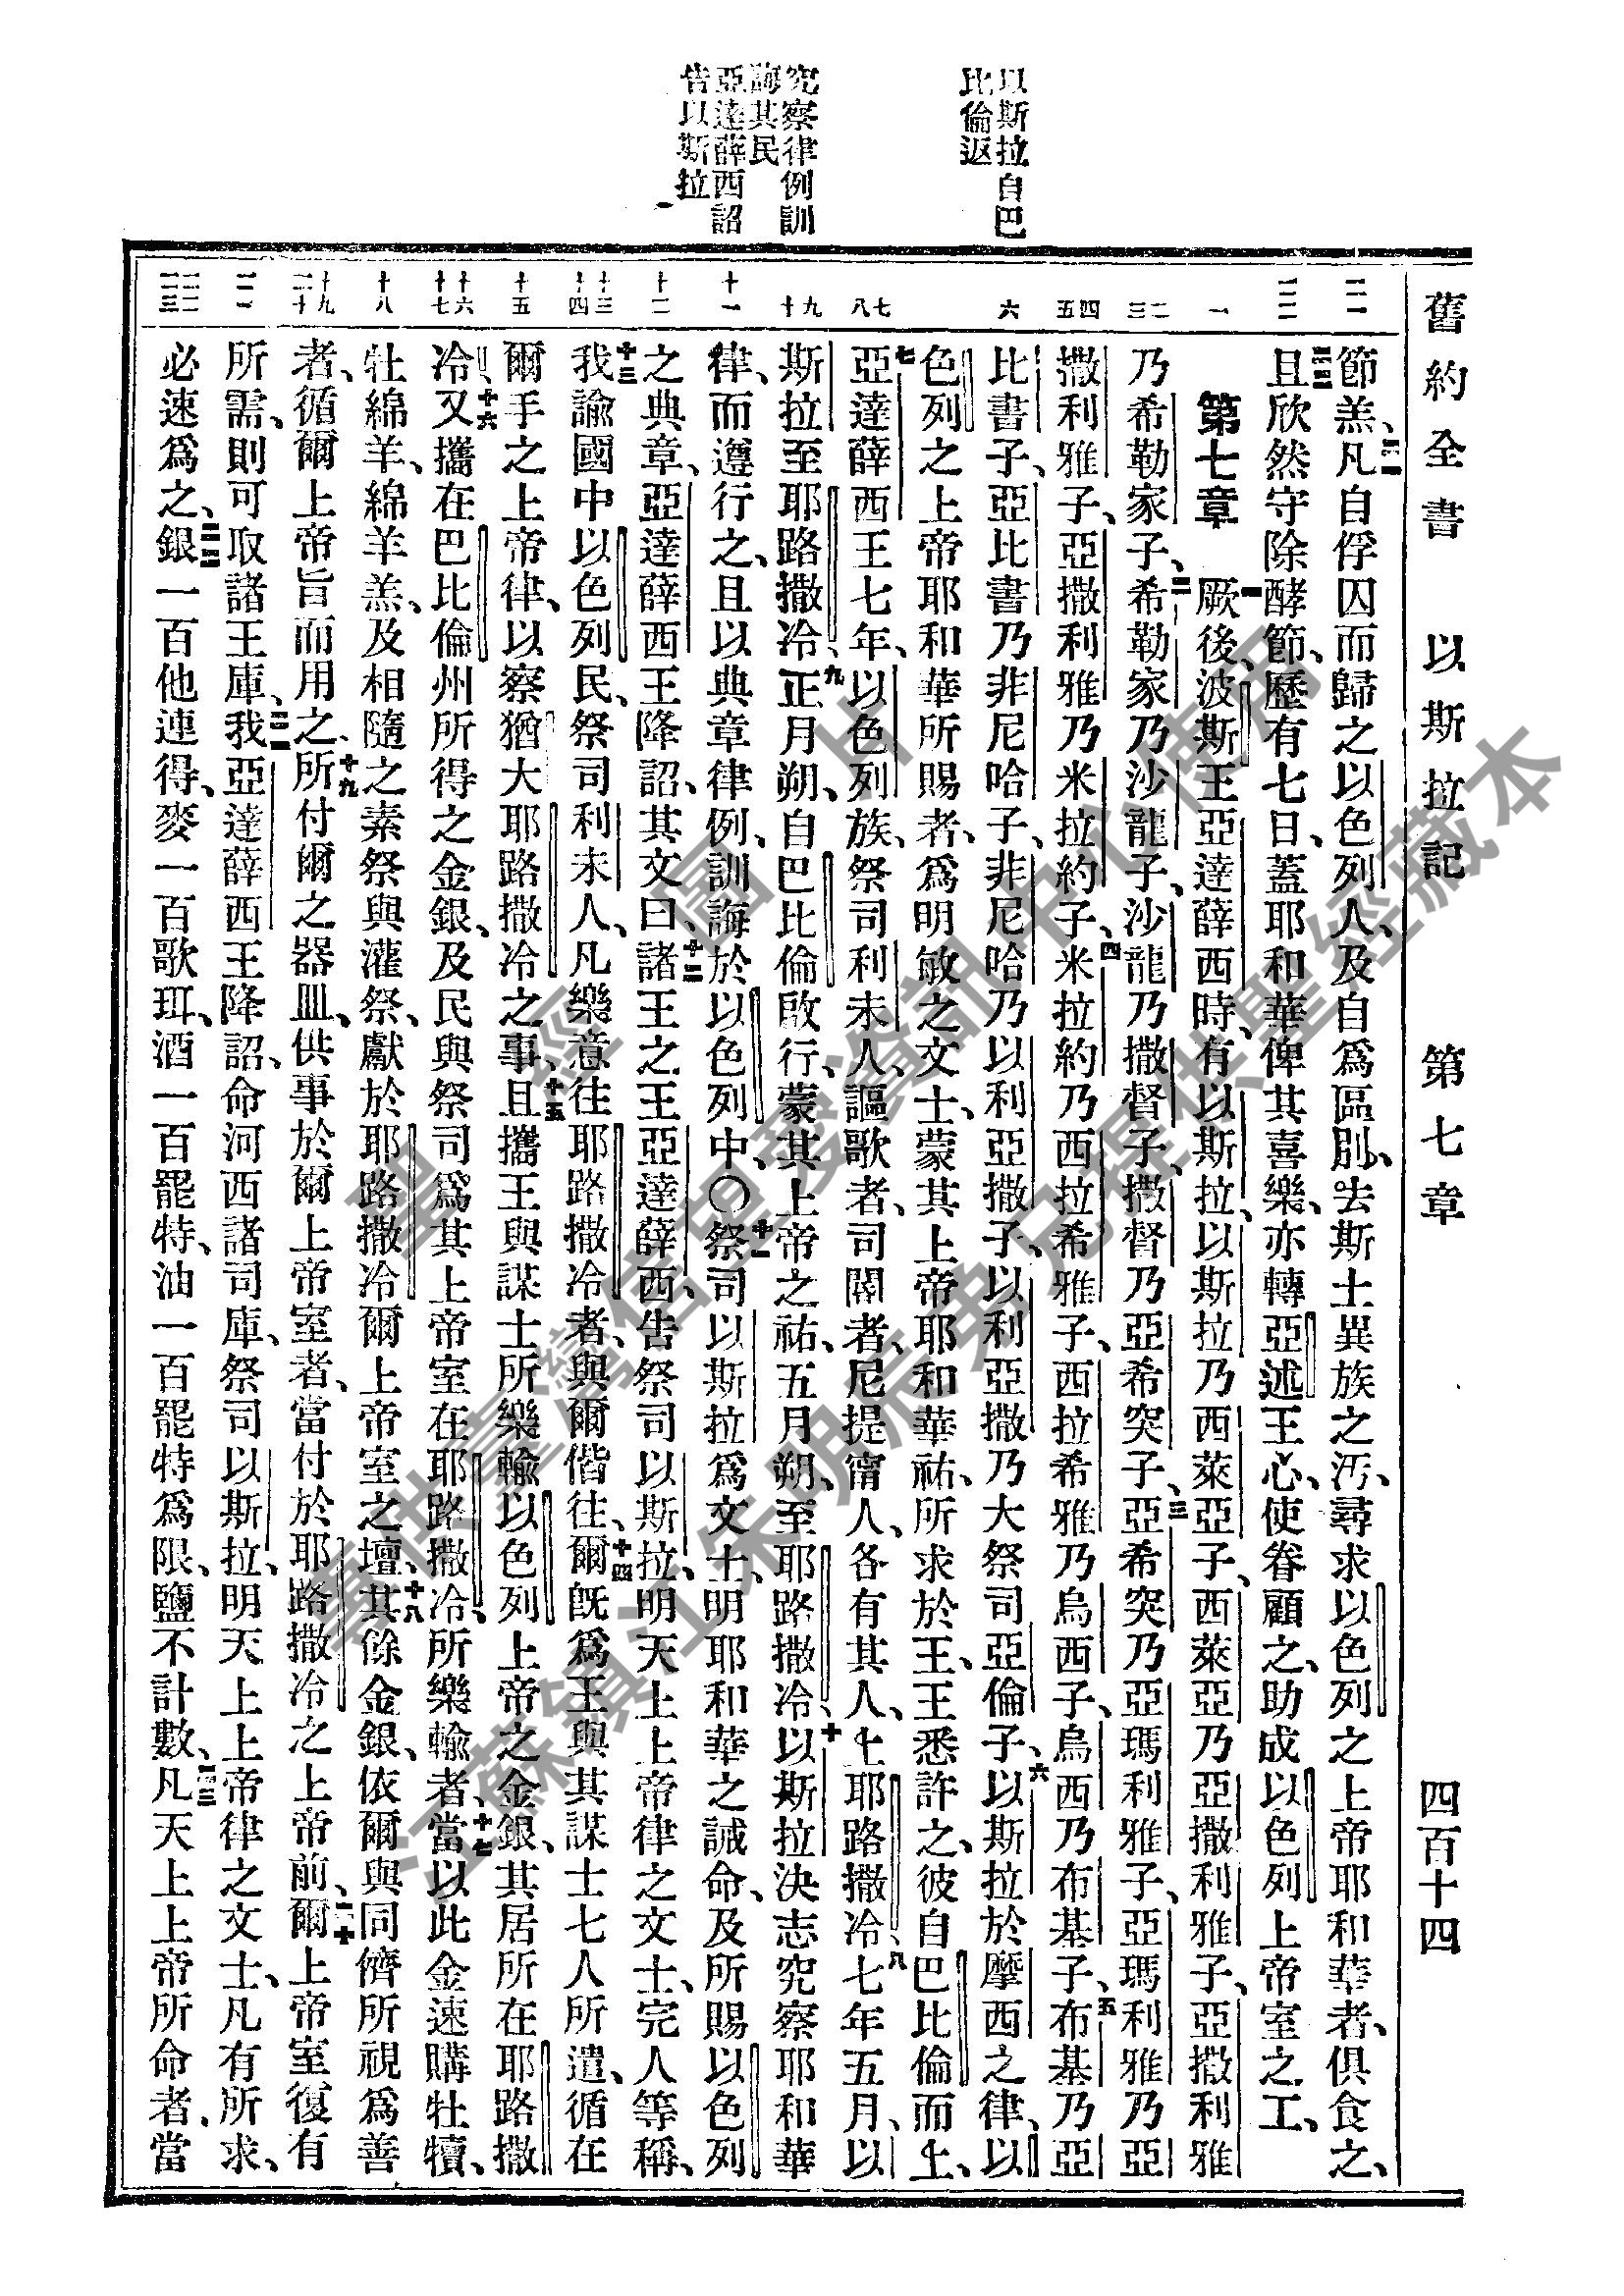 以斯拉自巴
比倫返
究察律例訓
誨其民
亞達薛西詔
告以斯拉
舊約全書 以斯拉記 第七章 四百十四
節羔、凡自俘囚而歸之以色列人、及自爲區別、去斯土異族之汚、尋求以色列之上帝耶和華者、俱食之、
且欣然守除酵節、歷有七日、蓋耶和華俾其喜樂、亦轉亞述王心、使眷顧之、助成以色列上帝室之工、
第七章 一厥後、波斯王亞達薛西時、有以斯拉、以斯拉乃西萊亞子、西萊亞乃亞撒利雅子、亞撒利雅
乃希勒家子、二希勒家乃沙龍子、沙龍乃撒督子、撒督乃亞希突子、三亞希突乃亞瑪利雅子、亞瑪利雅乃亞
撒利雅子、亞撒利雅乃米拉約子、四米拉約乃西拉希雅子、西拉希雅乃烏西子、烏西乃布基子、五布基乃亞
比書子、亞比書乃非尼哈子、非尼哈乃以利亞撒子、以利亞撒乃大祭司亞倫子、六以斯拉於摩西之律、以
色列之上帝耶和華所賜者、爲明敏之文士、蒙其上帝耶和華祐、所求於王、王悉許之、彼自巴比倫而上、
七亞達薛西王七年、以色列族、祭司利未人、謳歌者、司閽者、尼提甯人、各有其人、上耶路撒冷、八七年五月、以
斯拉至耶路撒冷、九正月朔、自巴比倫啟行、蒙其上帝之祐、五月朔、至耶路撒冷、十以斯拉決志究察耶和華
律、而遵行之、且以典章律例、訓誨於以色列中、〇十一祭司以斯拉爲文士、明耶和華之誡命、及所賜以色列
之典章、亞達薛西王降詔、其文曰、十二諸王之王亞達薛西、告祭司以斯拉、明天上上帝律之文士、完人等稱、
十三我諭國中以色列民、祭司利未人、凡樂意往耶路撒冷者、與爾偕往、十四爾旣爲王與其謀士七人所遣、循在
爾手之上帝律、以察猶大耶路撒冷之事、十五且攜王與謀士所樂輸以色列上帝之金銀、其居所在耶路撒
冷、十六又攜在巴比倫州所得之金銀、及民與祭司爲其上帝室在耶路撒冷、所樂輸者、十七當以此金速購牡犢、
牡綿羊、綿羊羔、及相隨之素祭與灌祭、獻於耶路撒冷爾上帝室之壇、十八其餘金銀、依爾與同儕所視爲善
者、循爾上帝旨而用之、十九所付爾之器皿、供事於爾上帝室者、當付於耶路撒冷之上帝前、二十爾上帝室復有
所需、則可取諸王庫、二一我亞達薛西王降詔、命河西諸司庫、祭司以斯拉、明天上上帝律之文士、凡有所求、
必速爲之、二二銀一百他連得、麥一百歌珥、酒一百罷特、油一百罷特爲限、鹽不計數、二三凡天上上帝所命者、當